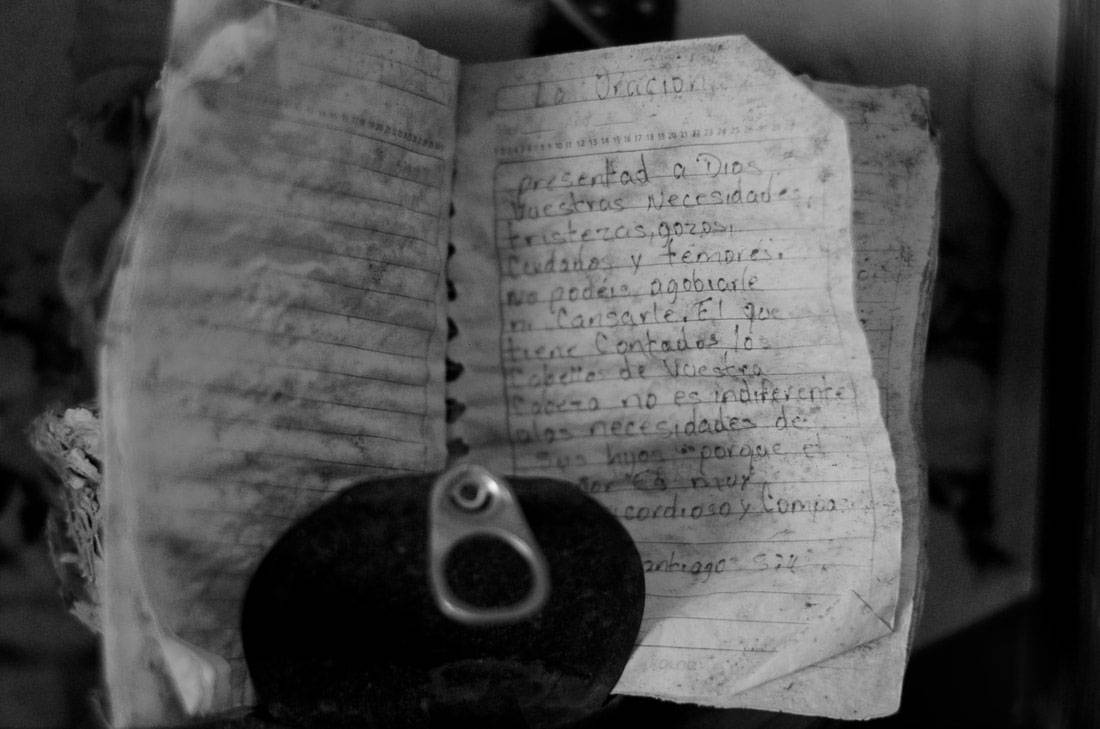 La Oracion
presentad a Dios
Vuestras Necesidades,
tristezas, gozos,
Cuidados y temores.
No podéis agobiarle
ni Cansarle. El que
tiene Contados los
Cabellos de Vuestra
Cabeza no es indiferente
alas necesidades de
sus hijos "porque el
Es muy
cordioso y Compa
antiago 5:11